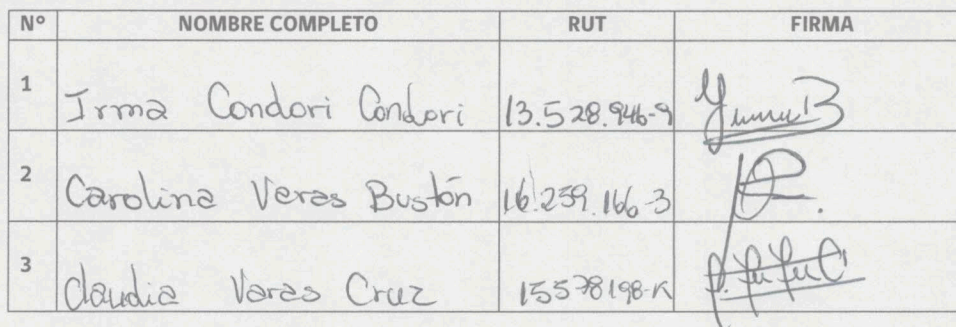 N° NOMBRE COMPLETO RUT FIRMA
1 Irma Condori Condori 13.528.946-9
2 Carolina Varas Bustón 16.259.166-3
3 Claudia Varas Cruz 15578198-K